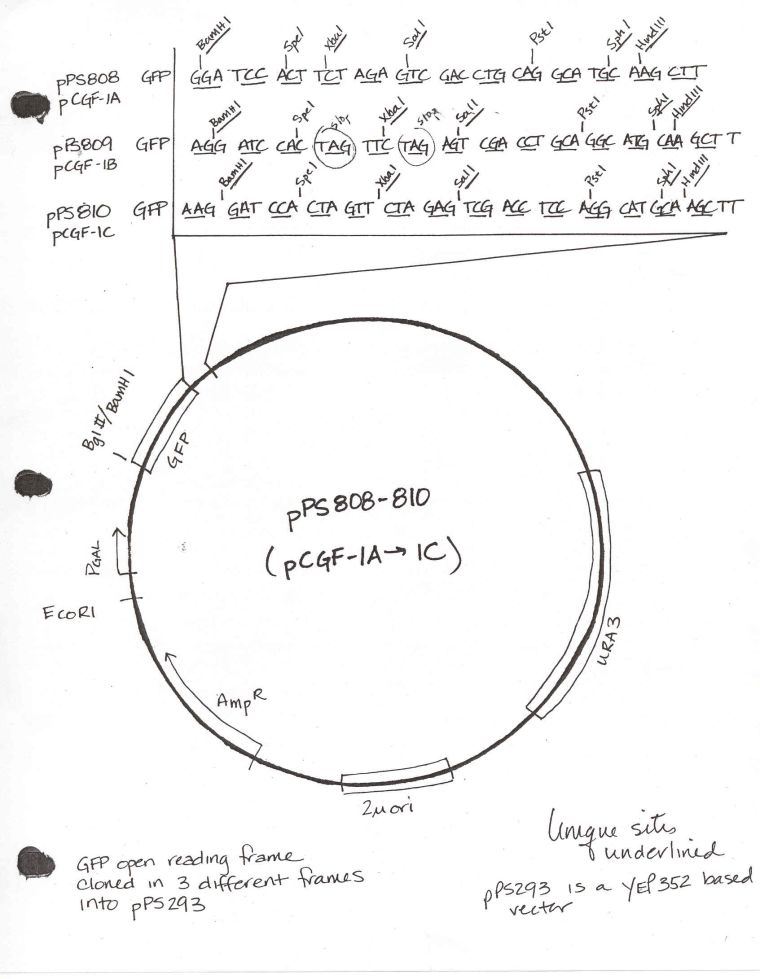 BamHI SpeI XbaI SalI PstI SphI HindIII
pPS808 GFP GGA TCC ACT TCT AGA GTC GAC CTG CAG GCA TGC AAG CTT
pCGF-1A
BamHI SpeI stop XbaI stop SalI PstI SphI HindIII
pPS809 GFP AGG ATC CAC TAG TTC TAG AGT CGA CCT GCA GGC ATG CAA GCT T
pCGF-1B
BamHI SpeI XbaI SalI PstI SphI HindIII
pPS810 GFP AAG GAT CCA CTA GTT CTA GAG TCG ACC TCC AGG CAT GCA AGC TT
pCGF-1C
Bgl II/BamHI
GFP
pPS808-810
(pCGF-1A→1C)
PGAL
EcoRI
URA3
AmpR
2μori
Unique sites
underlined
GFP open reading frame
cloned in 3 different frames
into pPS293
pPS293 is a YEP352 based
vector